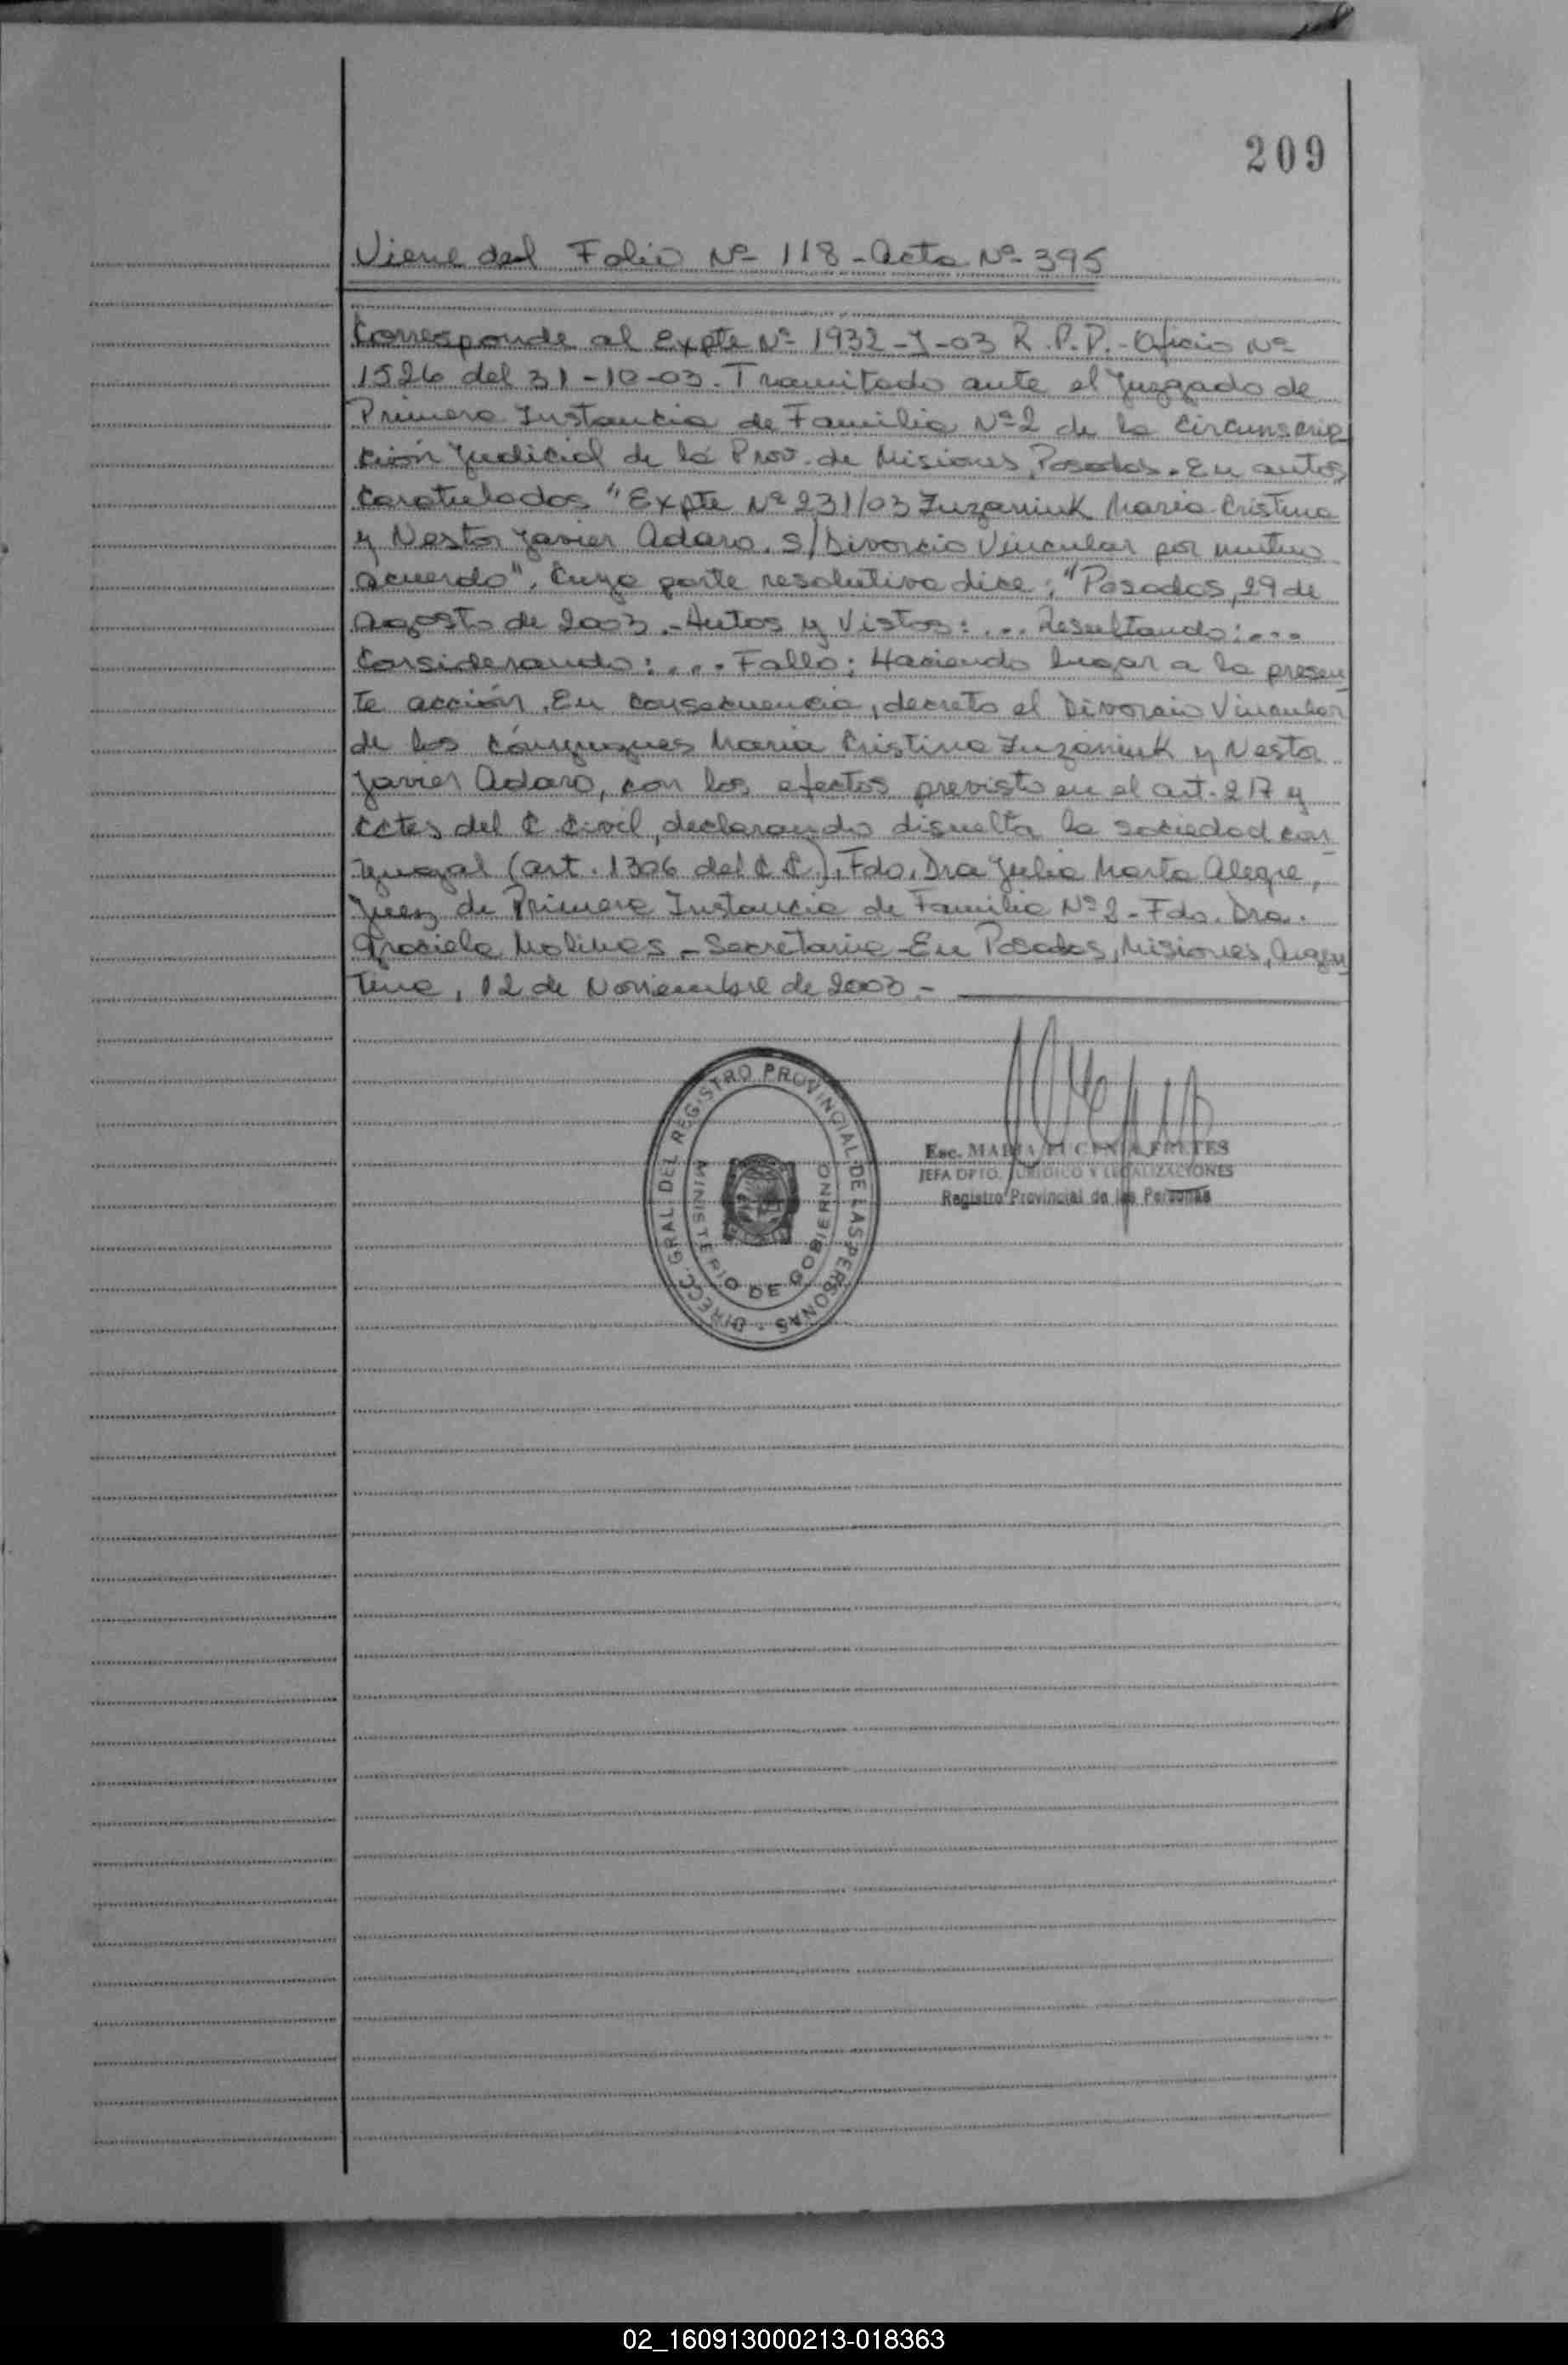 209
Viene del Folio Nº 118 - Acta Nº 395
Corresponde al Expte Nº 1932-J-03 R.P.P. - Oficio Nº
1526 del 31-10-03. Tramitado ante el Juzgado de
Primera Instancia de Familia Nº 2 de la Circunscrip
ción Judicial de la Prov. de Misiones, Posadas. En autos
Caratulados "Expte Nº 231/03 Zuzaniuk Maria Cristina
y Nestor Javier Adaro. S/ Divorcio Vincular por mutuo
acuerdo", Cuya parte resolutiva dice: "Posadas, 29 de
Agosto de 2003.- Autos y Vistos:... Resultando:...
Considerando:... Fallo: Haciendo lugar a la presen
te acción. En consecuencia, decreto el Divorcio Vincular
de los cónyugues Maria Cristina Zuzaniuk y Nesto
Javier Adaro, con los efectos previsto en el art. 217 y
cctes del C. Civil, declarando disuelta la sociedad con
yuogal (art. 1306 del C.C.). Fdo. Dra Julia Marta Alegre,
Juez de Primera Instancia de Familia Nº 2 - Fdo. Dra.
Graciela Molinas - Secretaria - En Posadas, Misiones, Argen
tina, 12 de Noviembre de 2003.-
DIRECC. GRAL. DEL REGISTRO PROVINCIAL DE LAS PERSONAS
MINISTERIO DE GOBIERNO
Esc. MARIA FRETES
JEFA DPTO. JURIDICO Y LEGALIZACIONES
Registro Provincial de las Personas
02_160913000213-018363